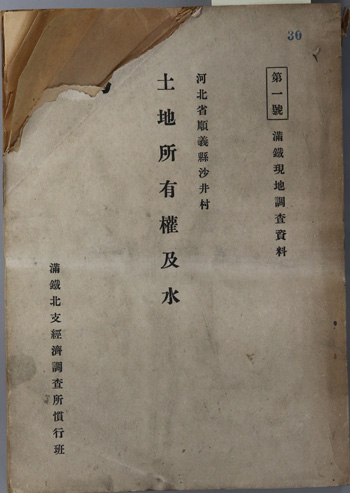 30
第一號
滿鐵現地調査資料
河北省順義縣沙井村
土地所有權及水
滿鐵北支經濟調査所慣行班